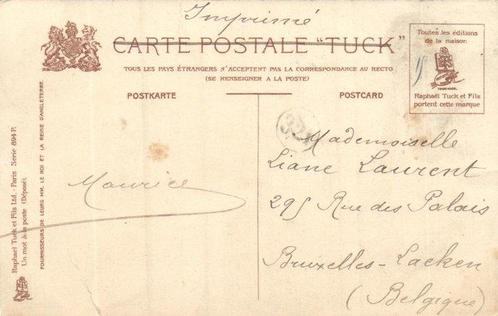 Imprimé
CARTE POSTALE "TUCK"
TOUS LES PAYS ÉTRANGERS N'ACCEPTENT PAS LA CORRESPONDANCE AU RECTO
(SE RENSEIGNER A LA POSTE)
POSTKARTE
POSTCARD
Toutes les éditions
de la maison
Raphael Tuck et Fils
portent cette marque
324
Mademoiselle
Liane Laurent
295 Rue des Palais
Bruxelles-Laeken
(Belgique)
Maurice
Raphael Tuck et Fils Ltd. - Paris Série 894 P.
Un mot à la poste (Déposé).
FOURNISSEURS DE LEURS MM. LE ROI ET LA REINE D'ANGLETERRE